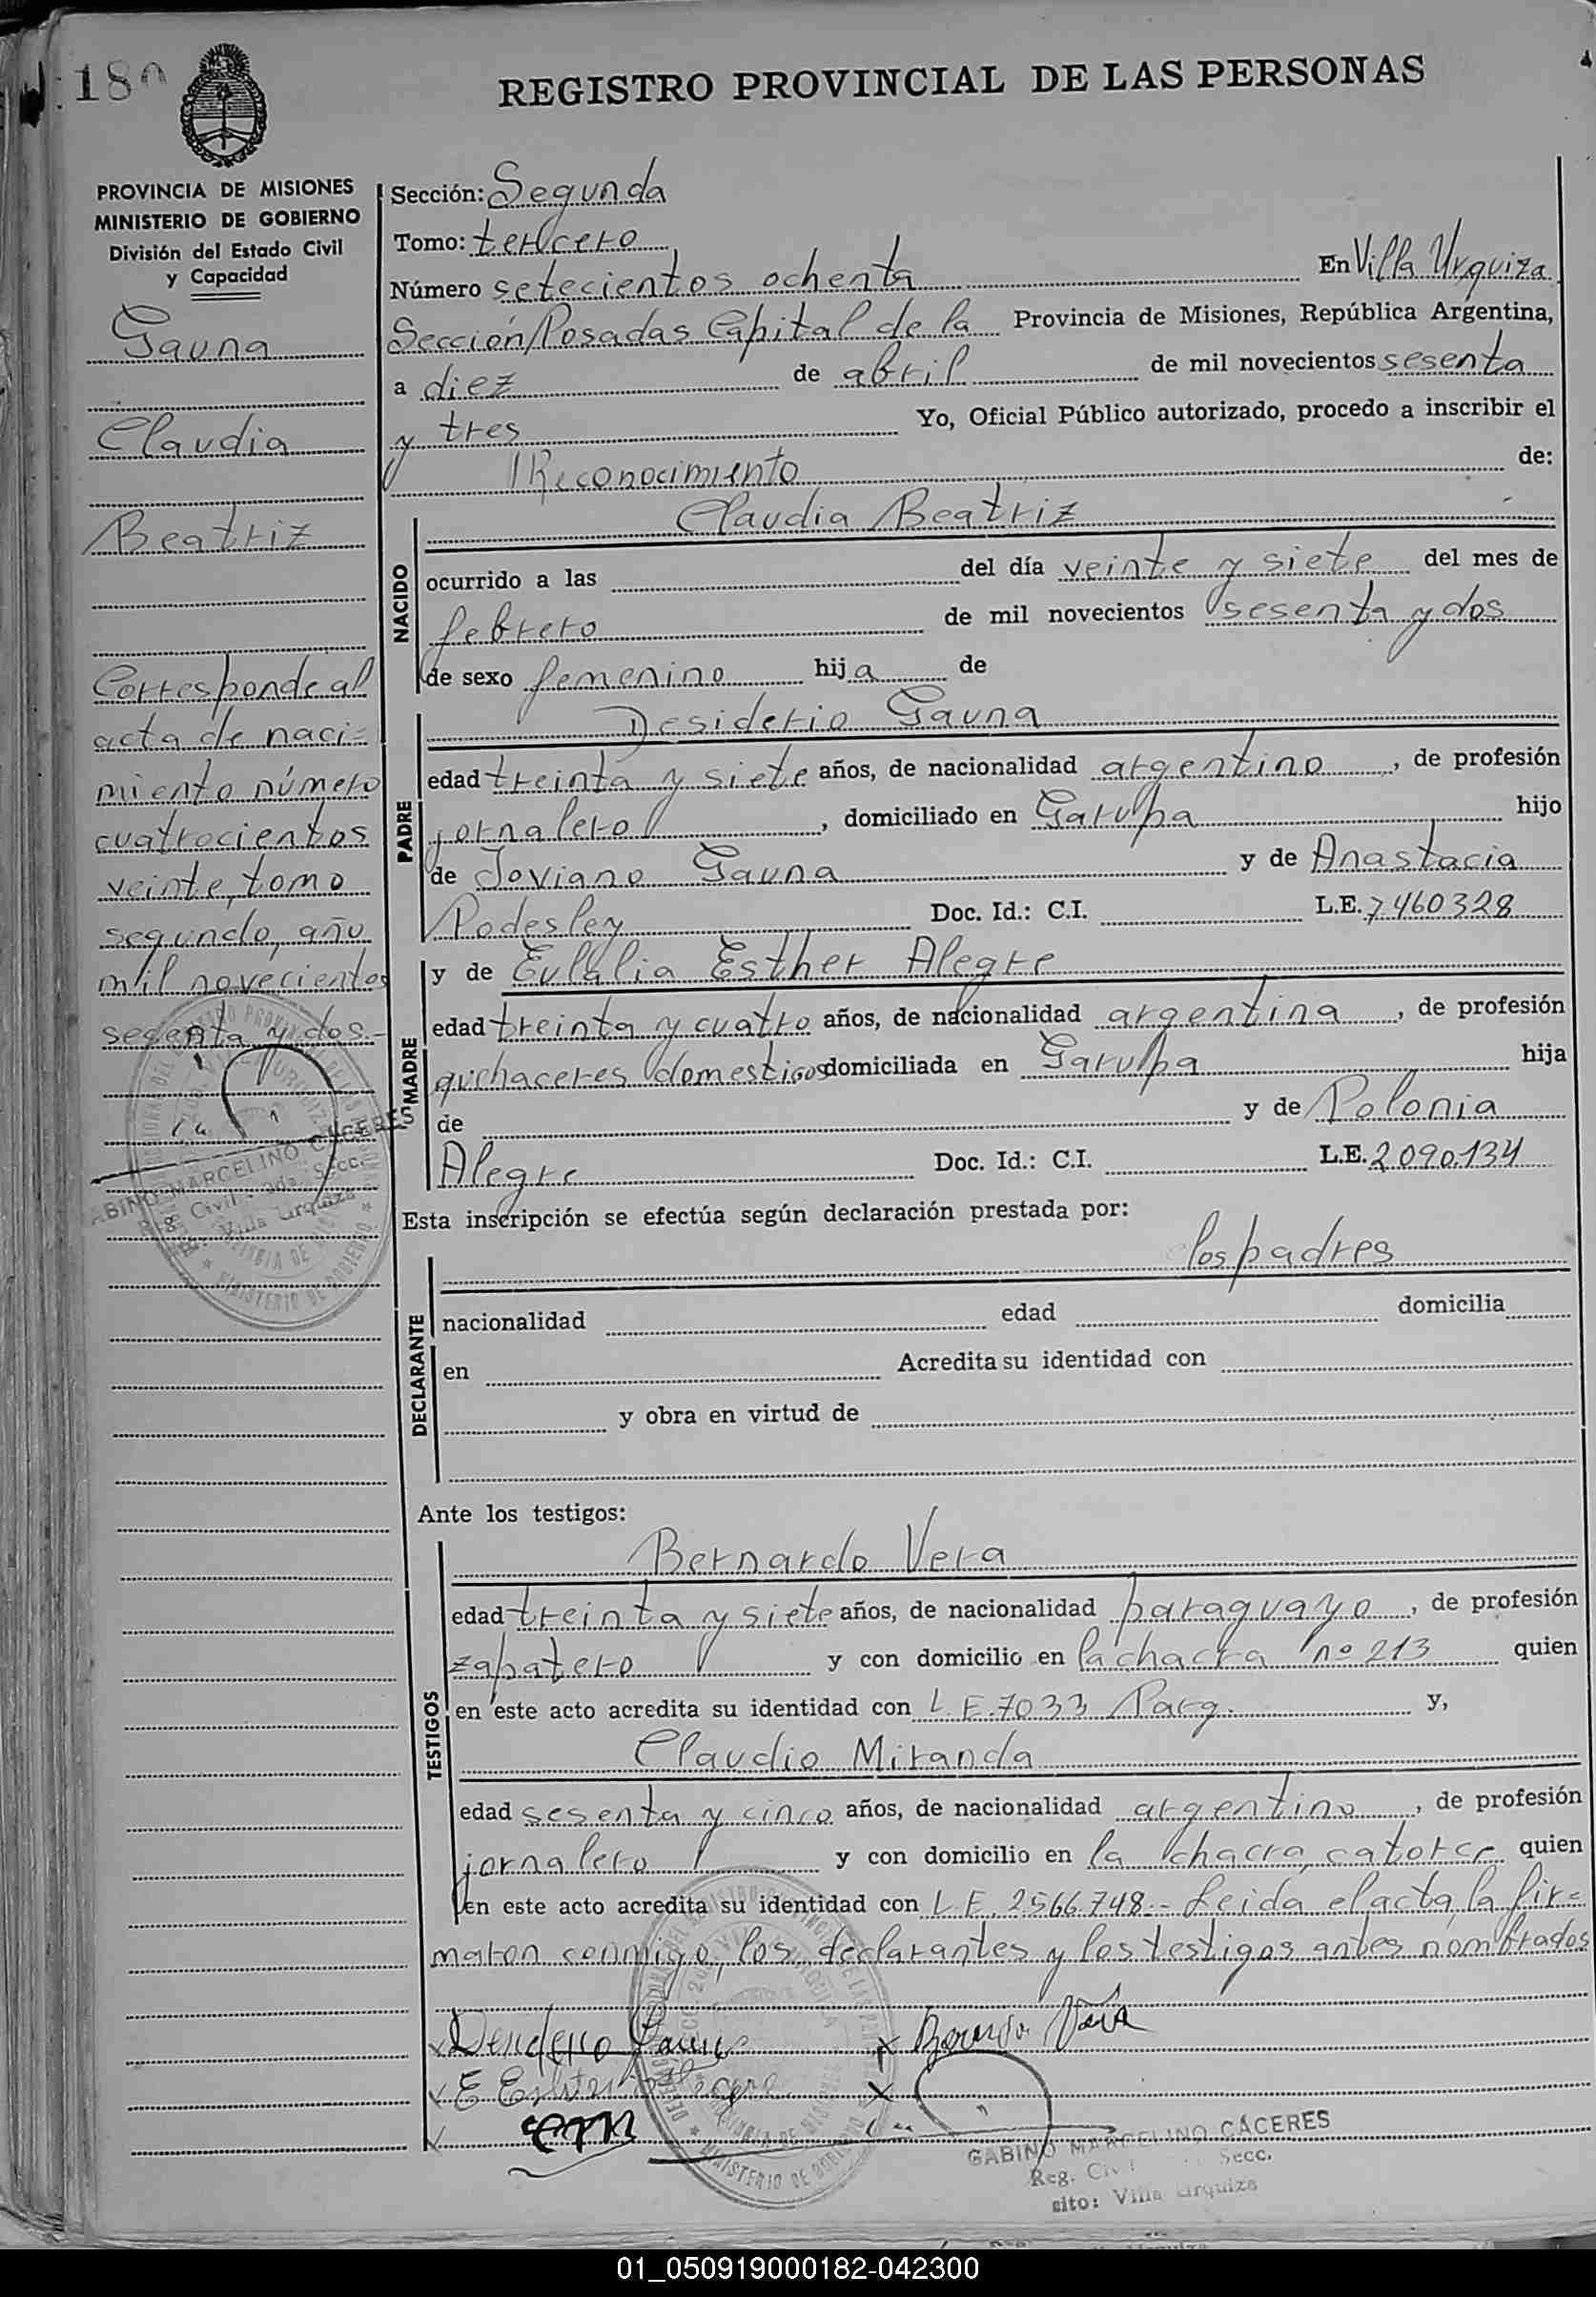 180
REGISTRO PROVINCIAL DE LAS PERSONAS
PROVINCIA DE MISIONES
MINISTERIO DE GOBIERNO
División del Estado Civil
y Capacidad
Gauna
Claudia
Beatriz
Corresponde al
acta de naci=
miento número
cuatrocientos
veinte, tomo
segundo, año
mil novecientos
sesenta y dos.-
Sección: Segunda
Tomo: tercero
Número setecientos ochenta En Villa Urquiza
Sección Posadas Capital de la Provincia de Misiones, República Argentina,
a diez de abril de mil novecientos sesenta
y tres Yo, Oficial Público autorizado, procedo a inscribir el
Reconocimiento de:
NACIDO
Claudia Beatriz
ocurrido a las del día veinte y siete del mes de
febrero de mil novecientos sesenta y dos
de sexo femenino hija de
PADRE
Desiderio Gauna
edad treinta y siete años, de nacionalidad argentino, de profesión
jornalero, domiciliado en Garupa hijo
de Joviano Gauna y de Anastacia
Podesley Doc. Id.: C.I. L.E. 7460328
MADRE
y de Eulalia Esther Alegre
edad treinta y cuatro años, de nacionalidad argentina, de profesión
quehaceres domesticos domiciliada en Garupa hija
de y de Polonia
Alegre Doc. Id.: C.I. L.E. 2090.134
Esta inscripción se efectúa según declaración prestada por:
DECLARANTE
los padres
nacionalidad edad domicilia
en Acredita su identidad con
y obra en virtud de
Ante los testigos:
TESTIGOS
Bernardo Vera
edad treinta y siete años, de nacionalidad paraguayo, de profesión
zapatero y con domicilio en la chacra nº 213 quien
en este acto acredita su identidad con L.E. 7033 Parg. y,
Claudio Miranda
edad sesenta y cinco años, de nacionalidad argentino, de profesión
jornalero y con domicilio en la chacra catorce quien
en este acto acredita su identidad con L.E. 2566.748.- Leida el acta, la fir=
maron conmigo, los declarantes y los testigos antes nombrados
GABINO MARCELINO CACERES
Reg. Civil Secc.
sito: Villa Urquiza
01_050919000182-042300